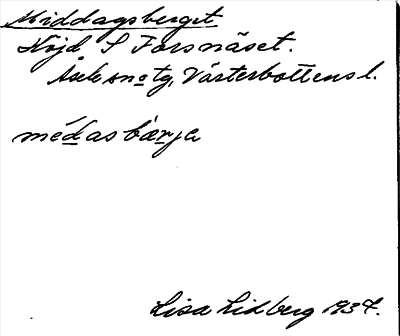 Middagsberget
Höjd S Forsnäset.
Åsele sn o tg, Västerbottens l.
médasbærja
Lisa Lidberg 1937.